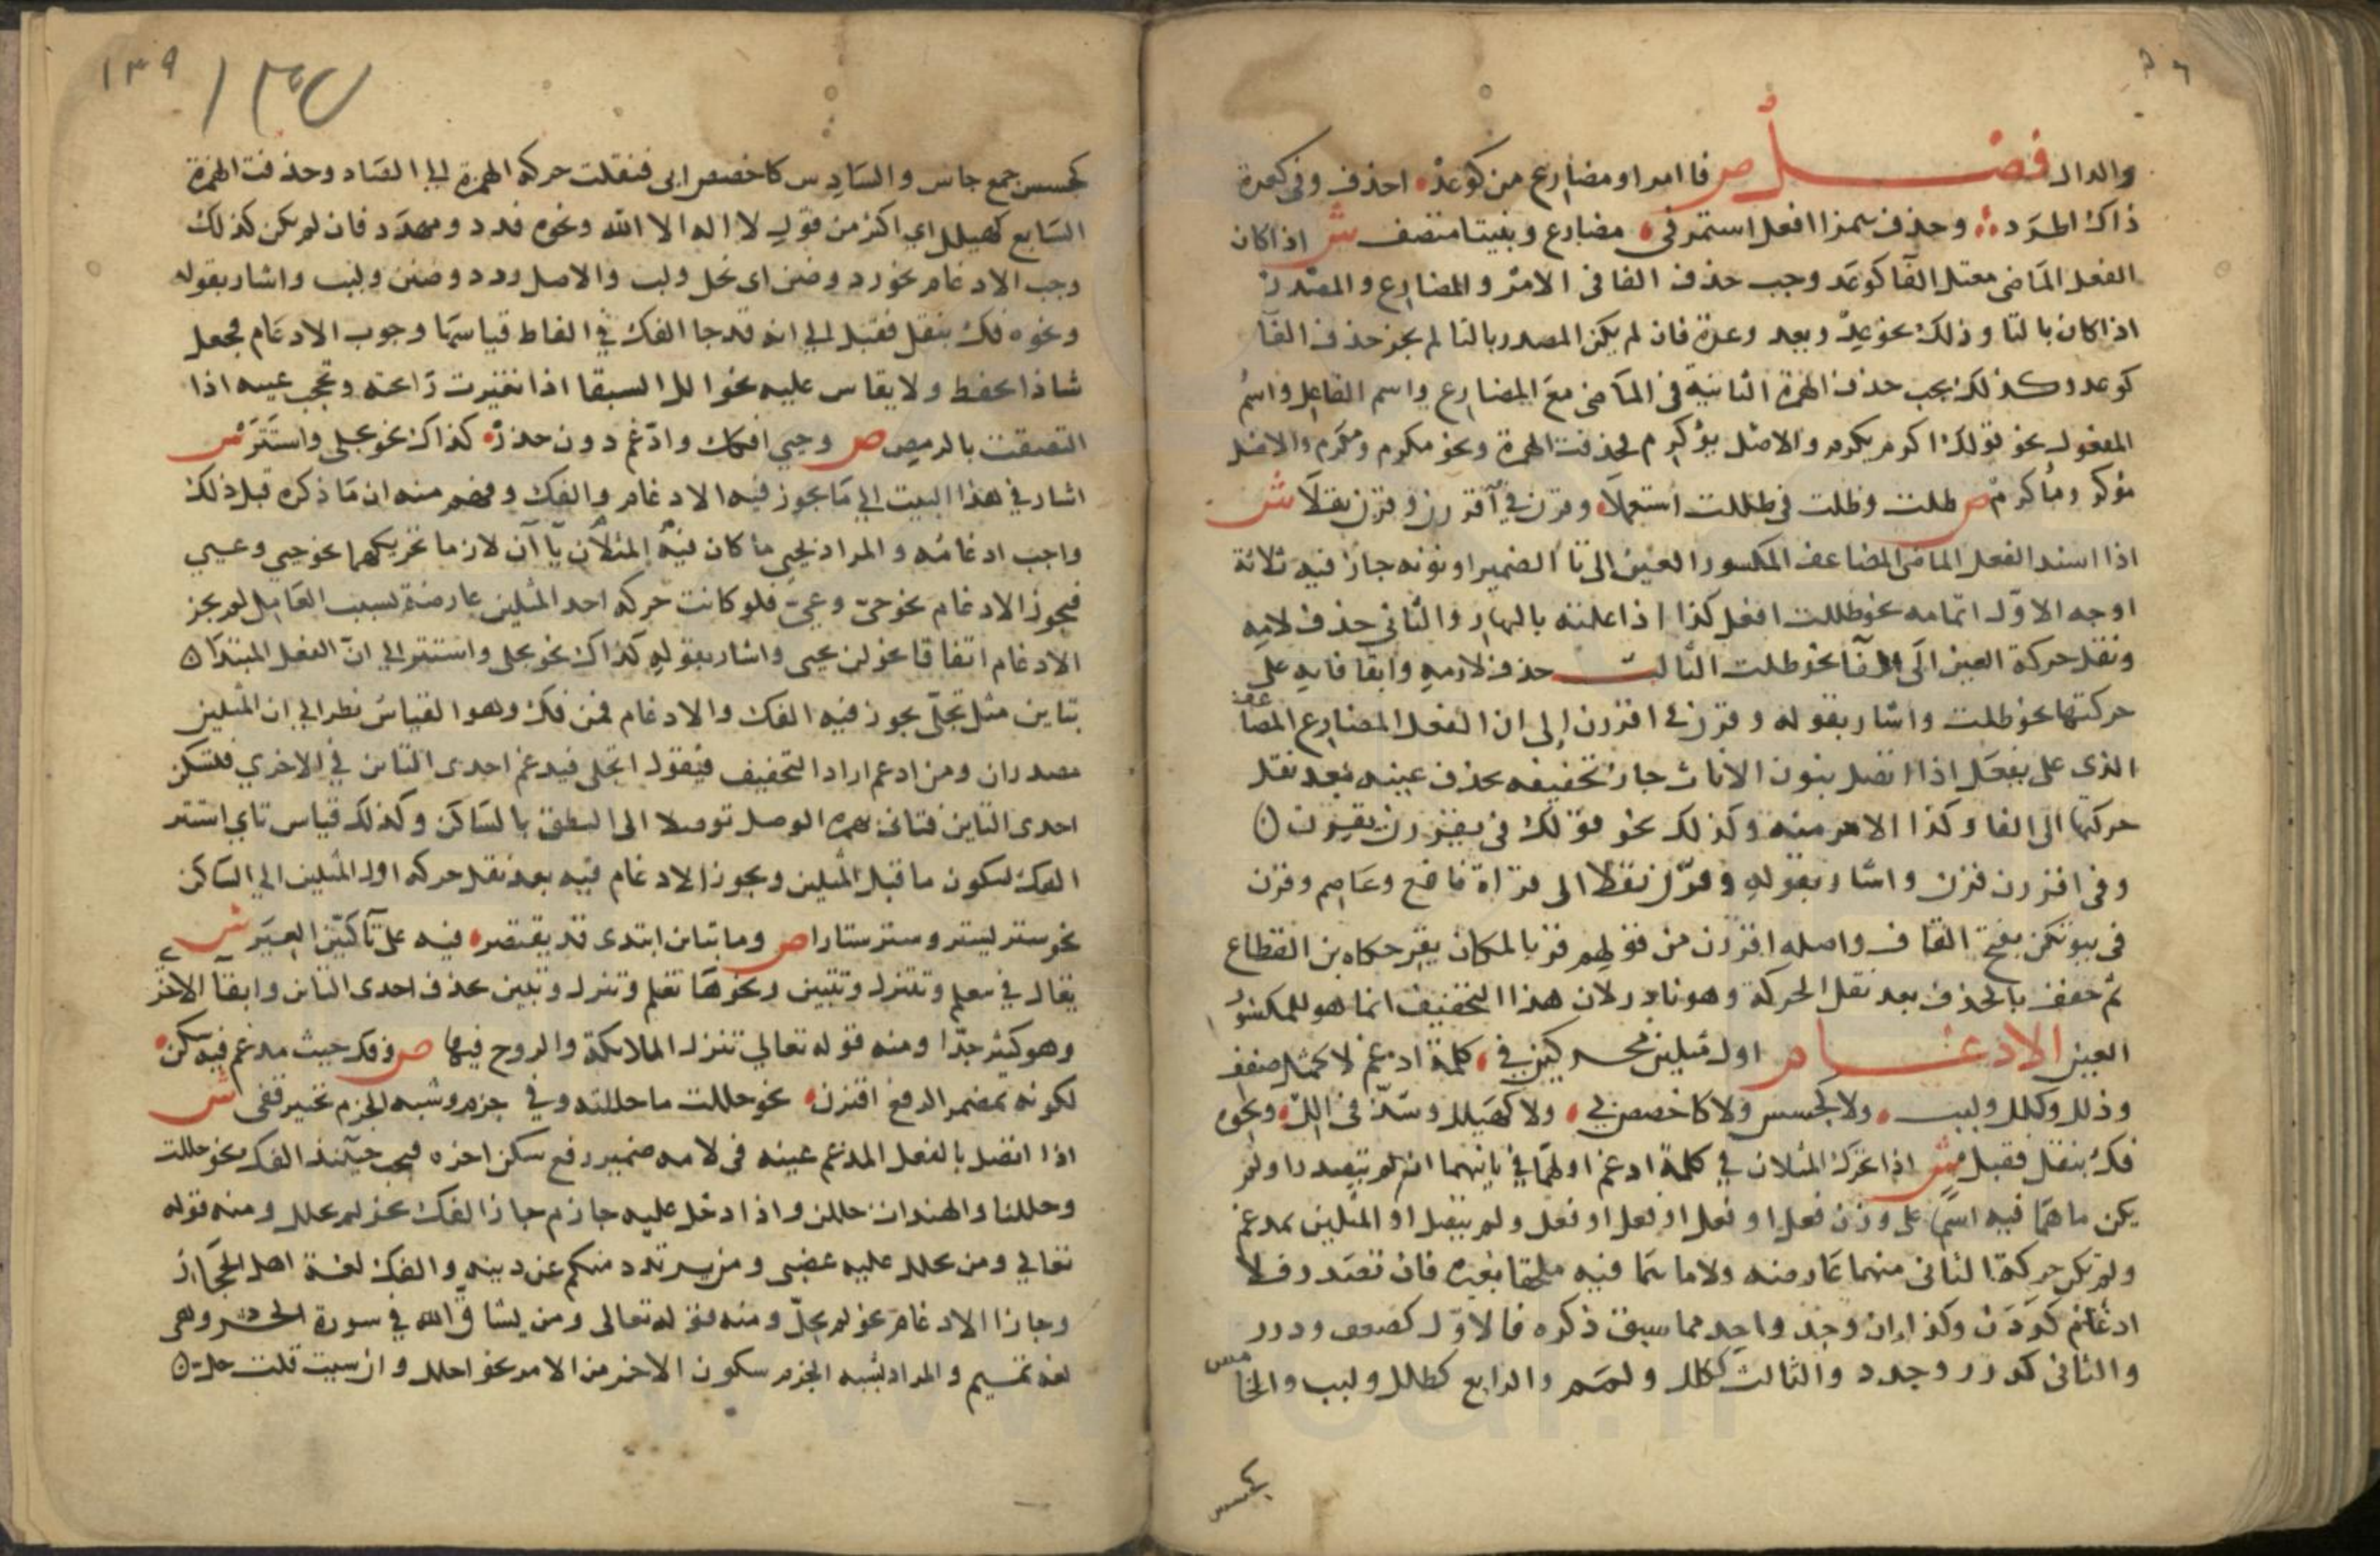 والدال فصل ص فا امر او مضارع من كوعد احذف وفي كعدة
ذاك اطرد وحذف همز افعل استمر في مضارع وبنيتا متصف ش اذا كان
الفعل الماضى معتل الفا كوعد وجب حذف الفا فى الامر والمضارع والمصدر
اذا كان بالتا وذلك نحو عد ويعد وعدة فان لم يكن المصدر بالتا لم يجز حذف الفا
كوعد وكذلك يجب حذف الهمزة الثانية فى الماضى مع المضارع واسم الفاعل واسم
المفعول نحو قولك اكرم يكرم والاصل يؤكرم فحذفت الهمزة ونحو مكرم ومكرم والاصل
مؤكرم ومأكرم ص ظلت وظلت فى ظللت استعملا وقرن في اقررن وقرن نقلا ش
اذا اسند الفعل الماضى المضاعف المكسور العين الى تا الضمير او نونه جاز فيه ثلاثة
اوجه الاول اتمامه نحو ظللت افعل كذا اذا عملته بالنهار والثانى حذف لامه
ونقل حركة العين الى الفا نحو ظلت الثالث حذف لامه وابقا فايه على
حركتها نحو ظلت واشار بقوله وقرن في اقررن الى ان الفعل المضارع المضاعف
الذى على يفعل اذا اتصل بنون الاناث جاز تخفيفه بحذف عينه بعد نقل
حركتها الى الفا وكذا الامر منه وكذلك نحو قولك فى يقررن يقرن
وفى اقررن قرن واشار بقوله وقرن نقلا الى قراة نافع وعاصم وقرن
فى بيوتكن بفتح القاف واصله اقررن من قولهم قر بالمكان يقر حكاه بن القطاع
ثم خفف بالحذف بعد نقل الحركة وهو نادر لان هذا التخفيف انما هو للمكسور
العين الادغام اول مثلين محركين في كلمة ادغم لا كمثل صفف
وذلل وكلل ولبب ولا كجسس ولا كاخصص بي ولا كهيلل وشذ فى الل ونحوه
فك بنقل فقبل ش اذا تحرك المثلان في كلمة ادغم اولهما في ثانيهما ان لم يتصدرا ولم
يكن ما هما فيه اسما على وزن فعل او فعل او فعل او فعل ولم يتصل او المثلين بمدغم
ولم تكن حركة الثانى منهما عارضه ولا ما هما فيه ملحقا بغيره فان تصدر فلا
ادغام كددن وكذا ان وجد واحد مما سبق ذكره فالاول كصفف ودرر
والثانى كدرر وجدد والثالث ككلل ولمم والرابع كطلل ولبب والخامس
كجسس
١٣٩
١٣٧
كجسس جمع جاس والسادس كاخصص ابى فنقلت حركة الهمزة الى الصاد وحذفت الهمزة
السابع كهيلل اي اكثر من قول لا اله الا الله ونحوه قردد ومهدد فان لم يكن كذلك
وجب الادغام نحو رد وضن اى بخل ولب والاصل ردد وضنن ولبب واشار بقوله
ونحوه فك بنقل فقبل الي انه قد جا الفك في الفاظ قياسها وجوب الادغام فجعل
شاذا يحفظ ولا يقاس عليه نحو الل السقا اذا تغيرت رائحته وتحجب عينه اذا
التصقت بالرمص ص وحيي افكك وادغم دون حذر كذاك نحو تتجلى واستتر ش
اشار في هذا البيت الي ما يجوز فيه الادغام والفك وفهم منه ان ما ذكره قبل ذلك
واجب ادغامه والمراد بحيي ما كان فيه المثلان يا آن لازما تحريكهما نحو حيي وعيي
فيجوز الادغام نحو حي وعي فلو كانت حركة احد المثلين عارضة بسبب العامل لم يجز
الادغام اتفاقا نحو لن يحيى واشار بقوله كذاك نحو تتجلى واستتر الى ان الفعل المبتدا
بتاين مثل تتجلى يجوز فيه الفك والادغام فمن فك وهو القياس نظر الي ان المثلين
مصدران ومن ادغم اراد التخفيف فيقول اتجلى فيدغم احدى التاين في الاخري فتسكن
احدى التاين فتاتى بهمزة الوصل توصلا الى النطق بالساكن وكذلك قياس تاي استتر
الفك لسكون ما قبل المثلين ويجوز الادغام فيه بعد نقل حركة اول المثلين الى الساكن
نحو ستر يستر وستر ستارا ص وما بتاين ابتدى قد يقتصر فيه على تا كتبين العبر ش
يقال في تتعلم وتتنزل وتتبين ونحوها تعلم وتنزل وتبين بحذف احدى التاين وابقآ الاخر
وهو كثير جدا ومنه قوله تعالي تنزل الملائكة والروح فيها ص وفك حيث مدغم فيه سكن
لكونه بمضمر الرفع اقترن نحو حللت ما حللته وفي جزم وشبه الجزم تخيير قفى ش
اذا اتصل بالفعل المدغم عينه فى لامه ضمير رفع سكن اخره فيجب حينئذ الفك نحو حللت
وحللنا والهندات حللن واذا دخل عليه جازم جاز الفك نحو لم يحلل ومنه قوله
تعالي ومن يحلل عليه غضبى ومن يرتدد منكم عن دينه والفك لغة اهل الحجاز
وجاز الادغام نحو لم يحل ومنه قوله تعالى ومن يشاق الله في سورة الحشر وهى
لغة تميم والمراد بشبه الجزم سكون الاخر من الامر نحو احلل وان شيت قلت حل